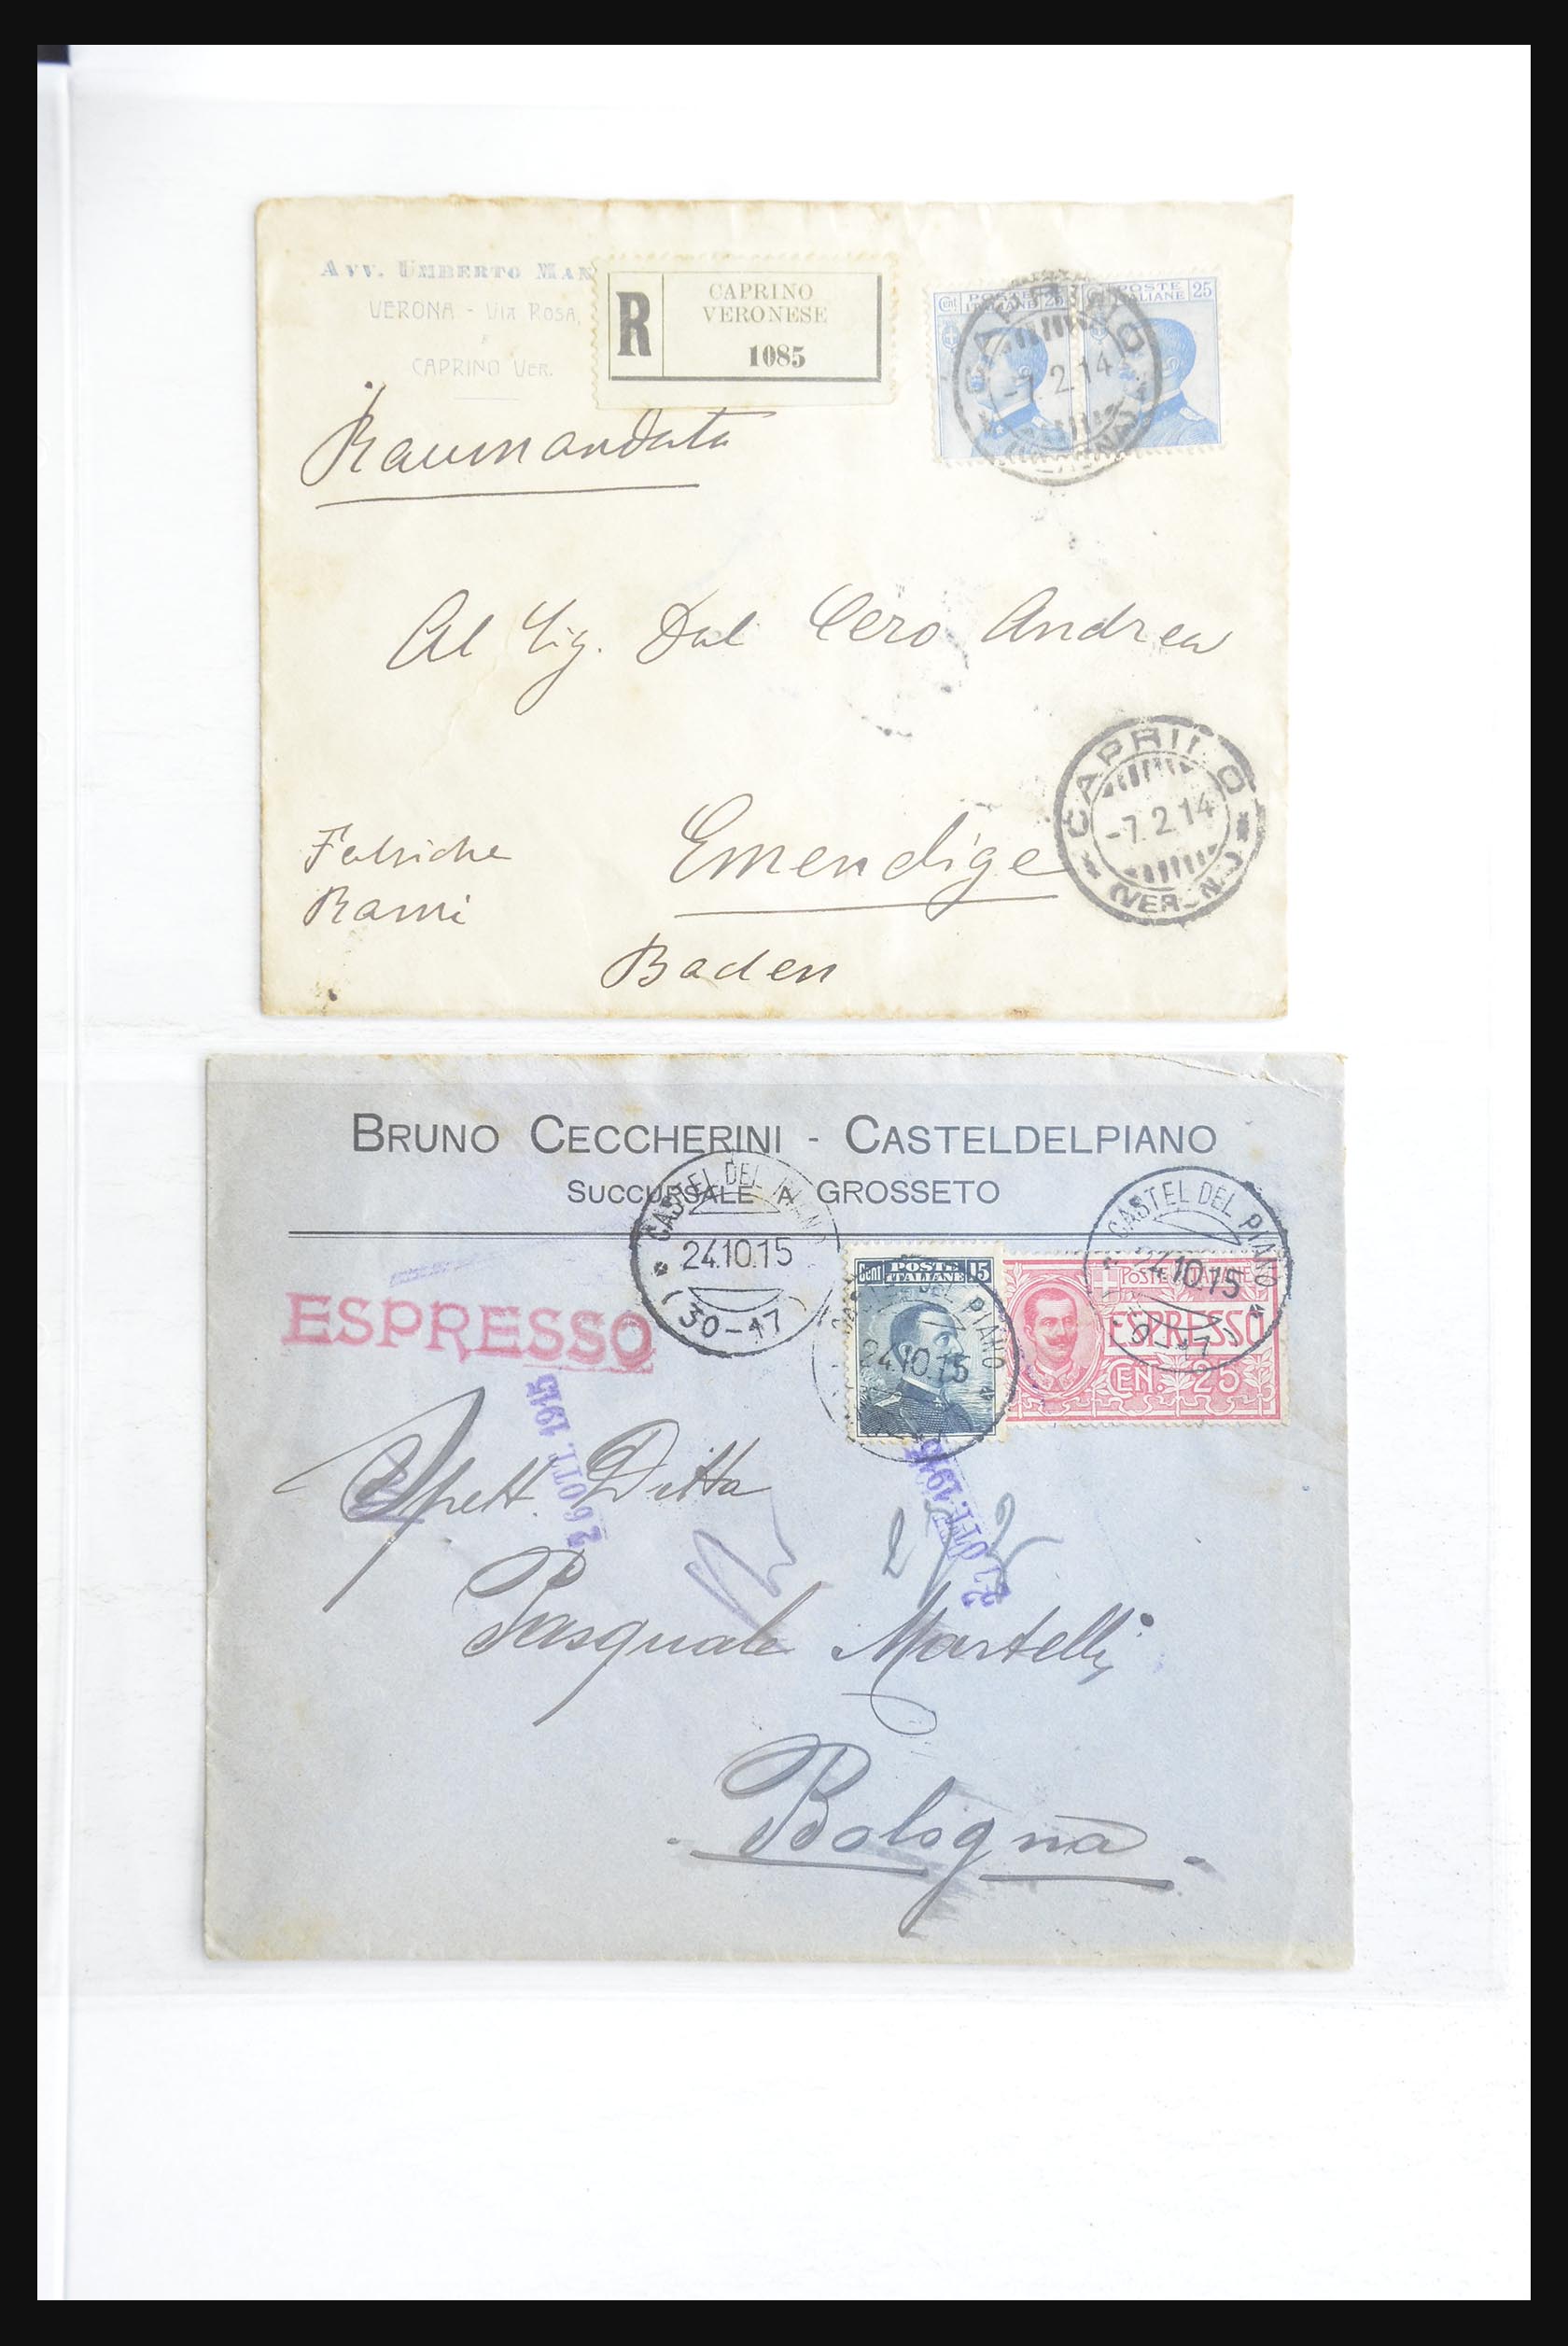 AVV. UMBERTO MAN
VERONA - VIA ROSA,
CAPRINO VER.
R
CAPRINO
VERONESE
1085
Cent POSTE ITALIANE 25
POSTE ITALIANE 25
-7.2.14
Raccomandata
Al Sig. Dal Cero Andrea
CAPRINO
-7.2.14
(VERONA)
Fabriche
Emendige
Baden
BRUNO CECCHERINI - CASTELDELPIANO
SUCCURSALE A GROSSETO
CASTEL DEL PIANO
24.10.15
(30-17)
CASTEL DEL PIANO
24.10.15
Cent POSTE ITALIANE 15
DEL PIANO
24.10.15
POSTE ITALIANE
ESPRESSO
CEN. 25
ESPRESSO
26 OTT. 1915
OTT. 1915
Spett Ditta
Pasquale Martelli,
Bologna